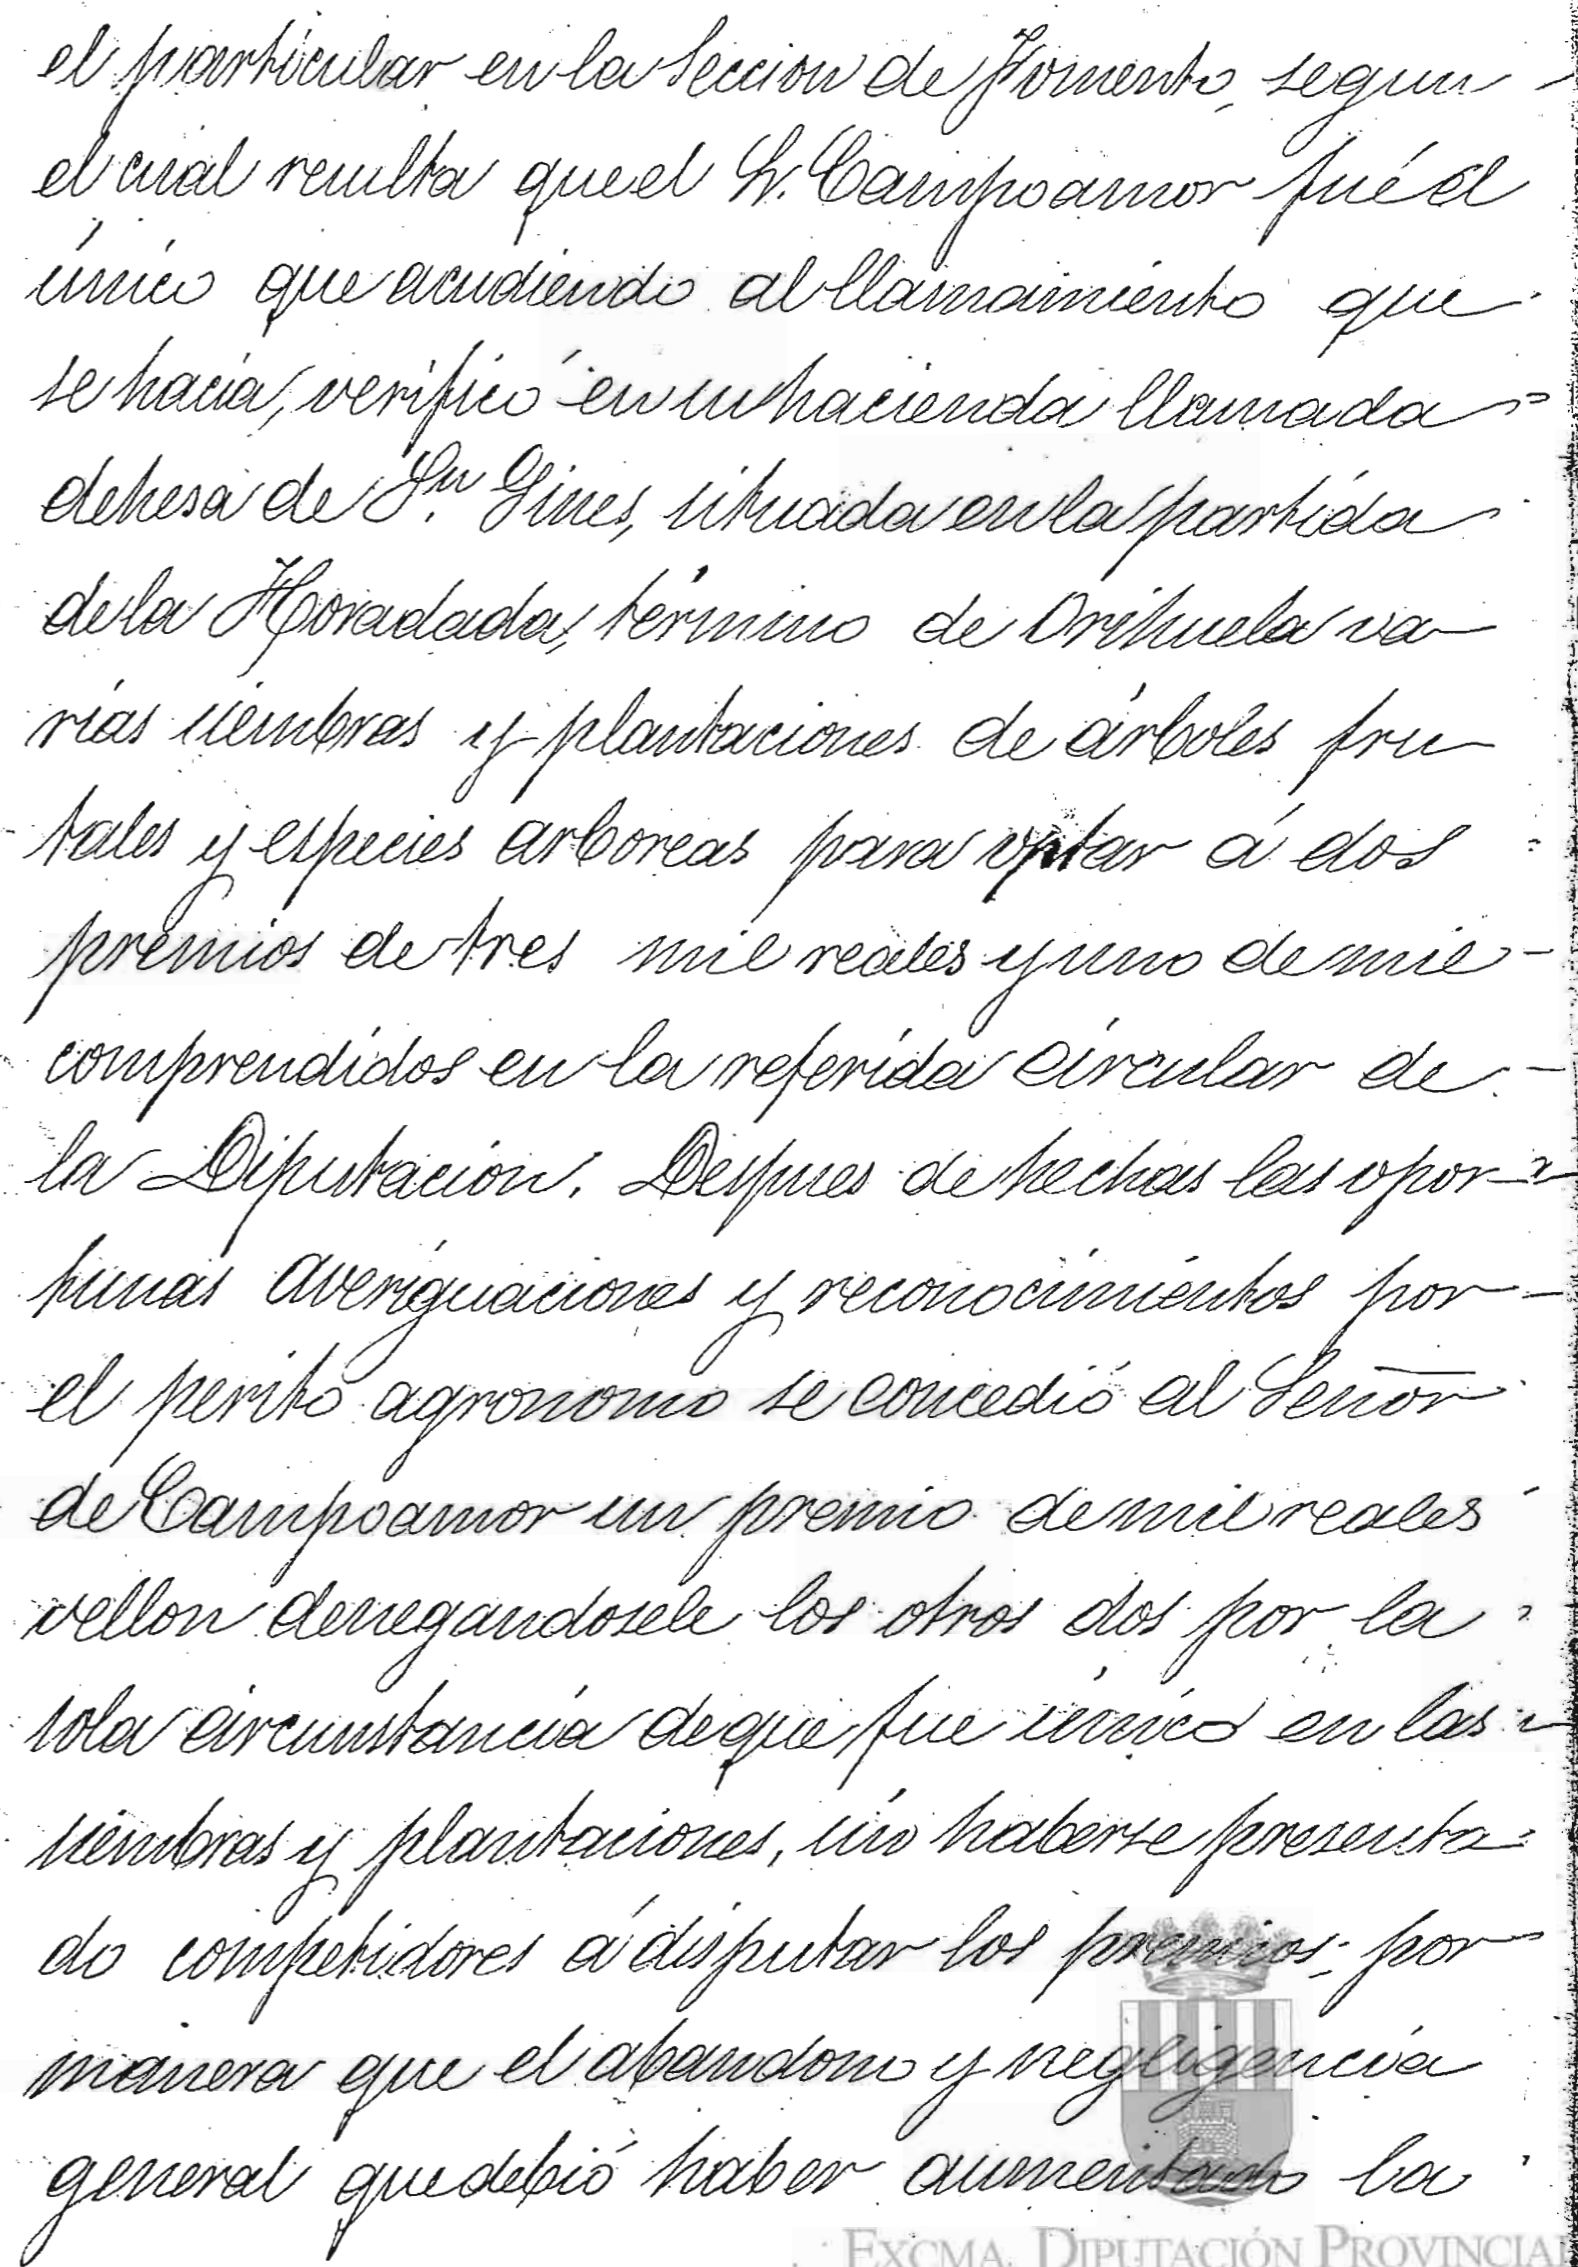 el particular en la Seccion de Fomento, segun
el cual resulta que el Sr. Campoamor fué el
único que acudiendo al llamamiento que
se hacia, verificó en su hacienda llamada
dehesa de Sn. Gines, situada en la partida
de la Horadada, término de Orihuela va-
rias siembras y plantaciones de árboles fru-
tales y especies arboreas para optar á dos
premios de tres mil reales y uno de mil
comprendidos en la referida circular de
la Diputacion. Despues de hechas las opor-
tunas averiguaciones y reconocimientos por
el perito agronomo se concedió al Señor
de Campoamor un premio de mil reales
vellon denegandosele los otros dos por la
sola circunstancia de que fue único en las
siembras y plantaciones, sin haberse presenta-
do competidores á disputar los premios; por
manera que el abandono y negligencia
general que debió haber aumentado la
EXCMA. DIPUTACIÓN PROVINCIAL